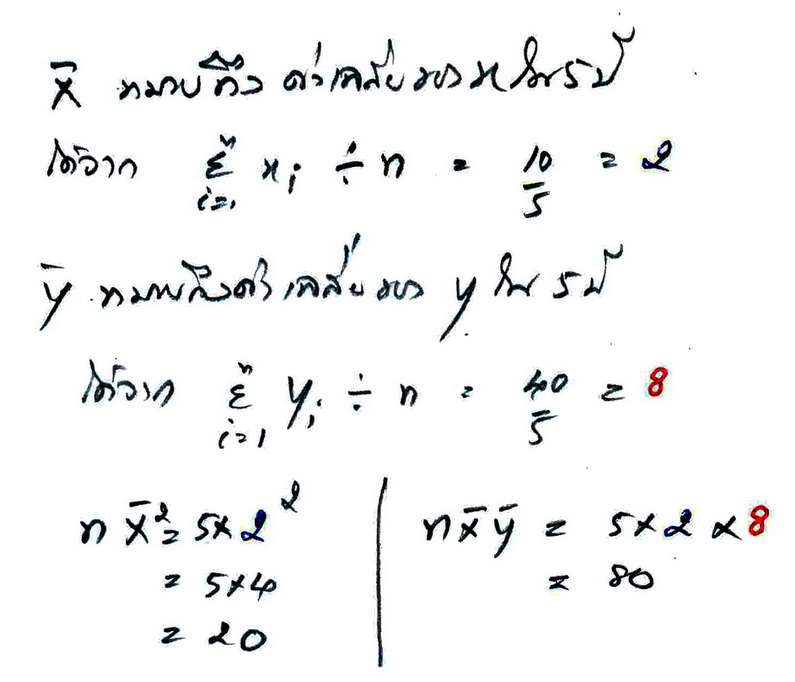 x̄ หมายถึง ค่าเฉลี่ยของ x ใน 5 ปี
ได้จาก n Σ i=1 xi ÷ n = 10/5 = 2
ȳ หมายถึงค่าเฉลี่ยของ y ใน 5 ปี
ได้จาก n Σ i=1 yi ÷ n = 40/5 = 8
n x̄² = 5×2²
= 5×4
= 20
n x̄ ȳ = 5×2×8
= 80